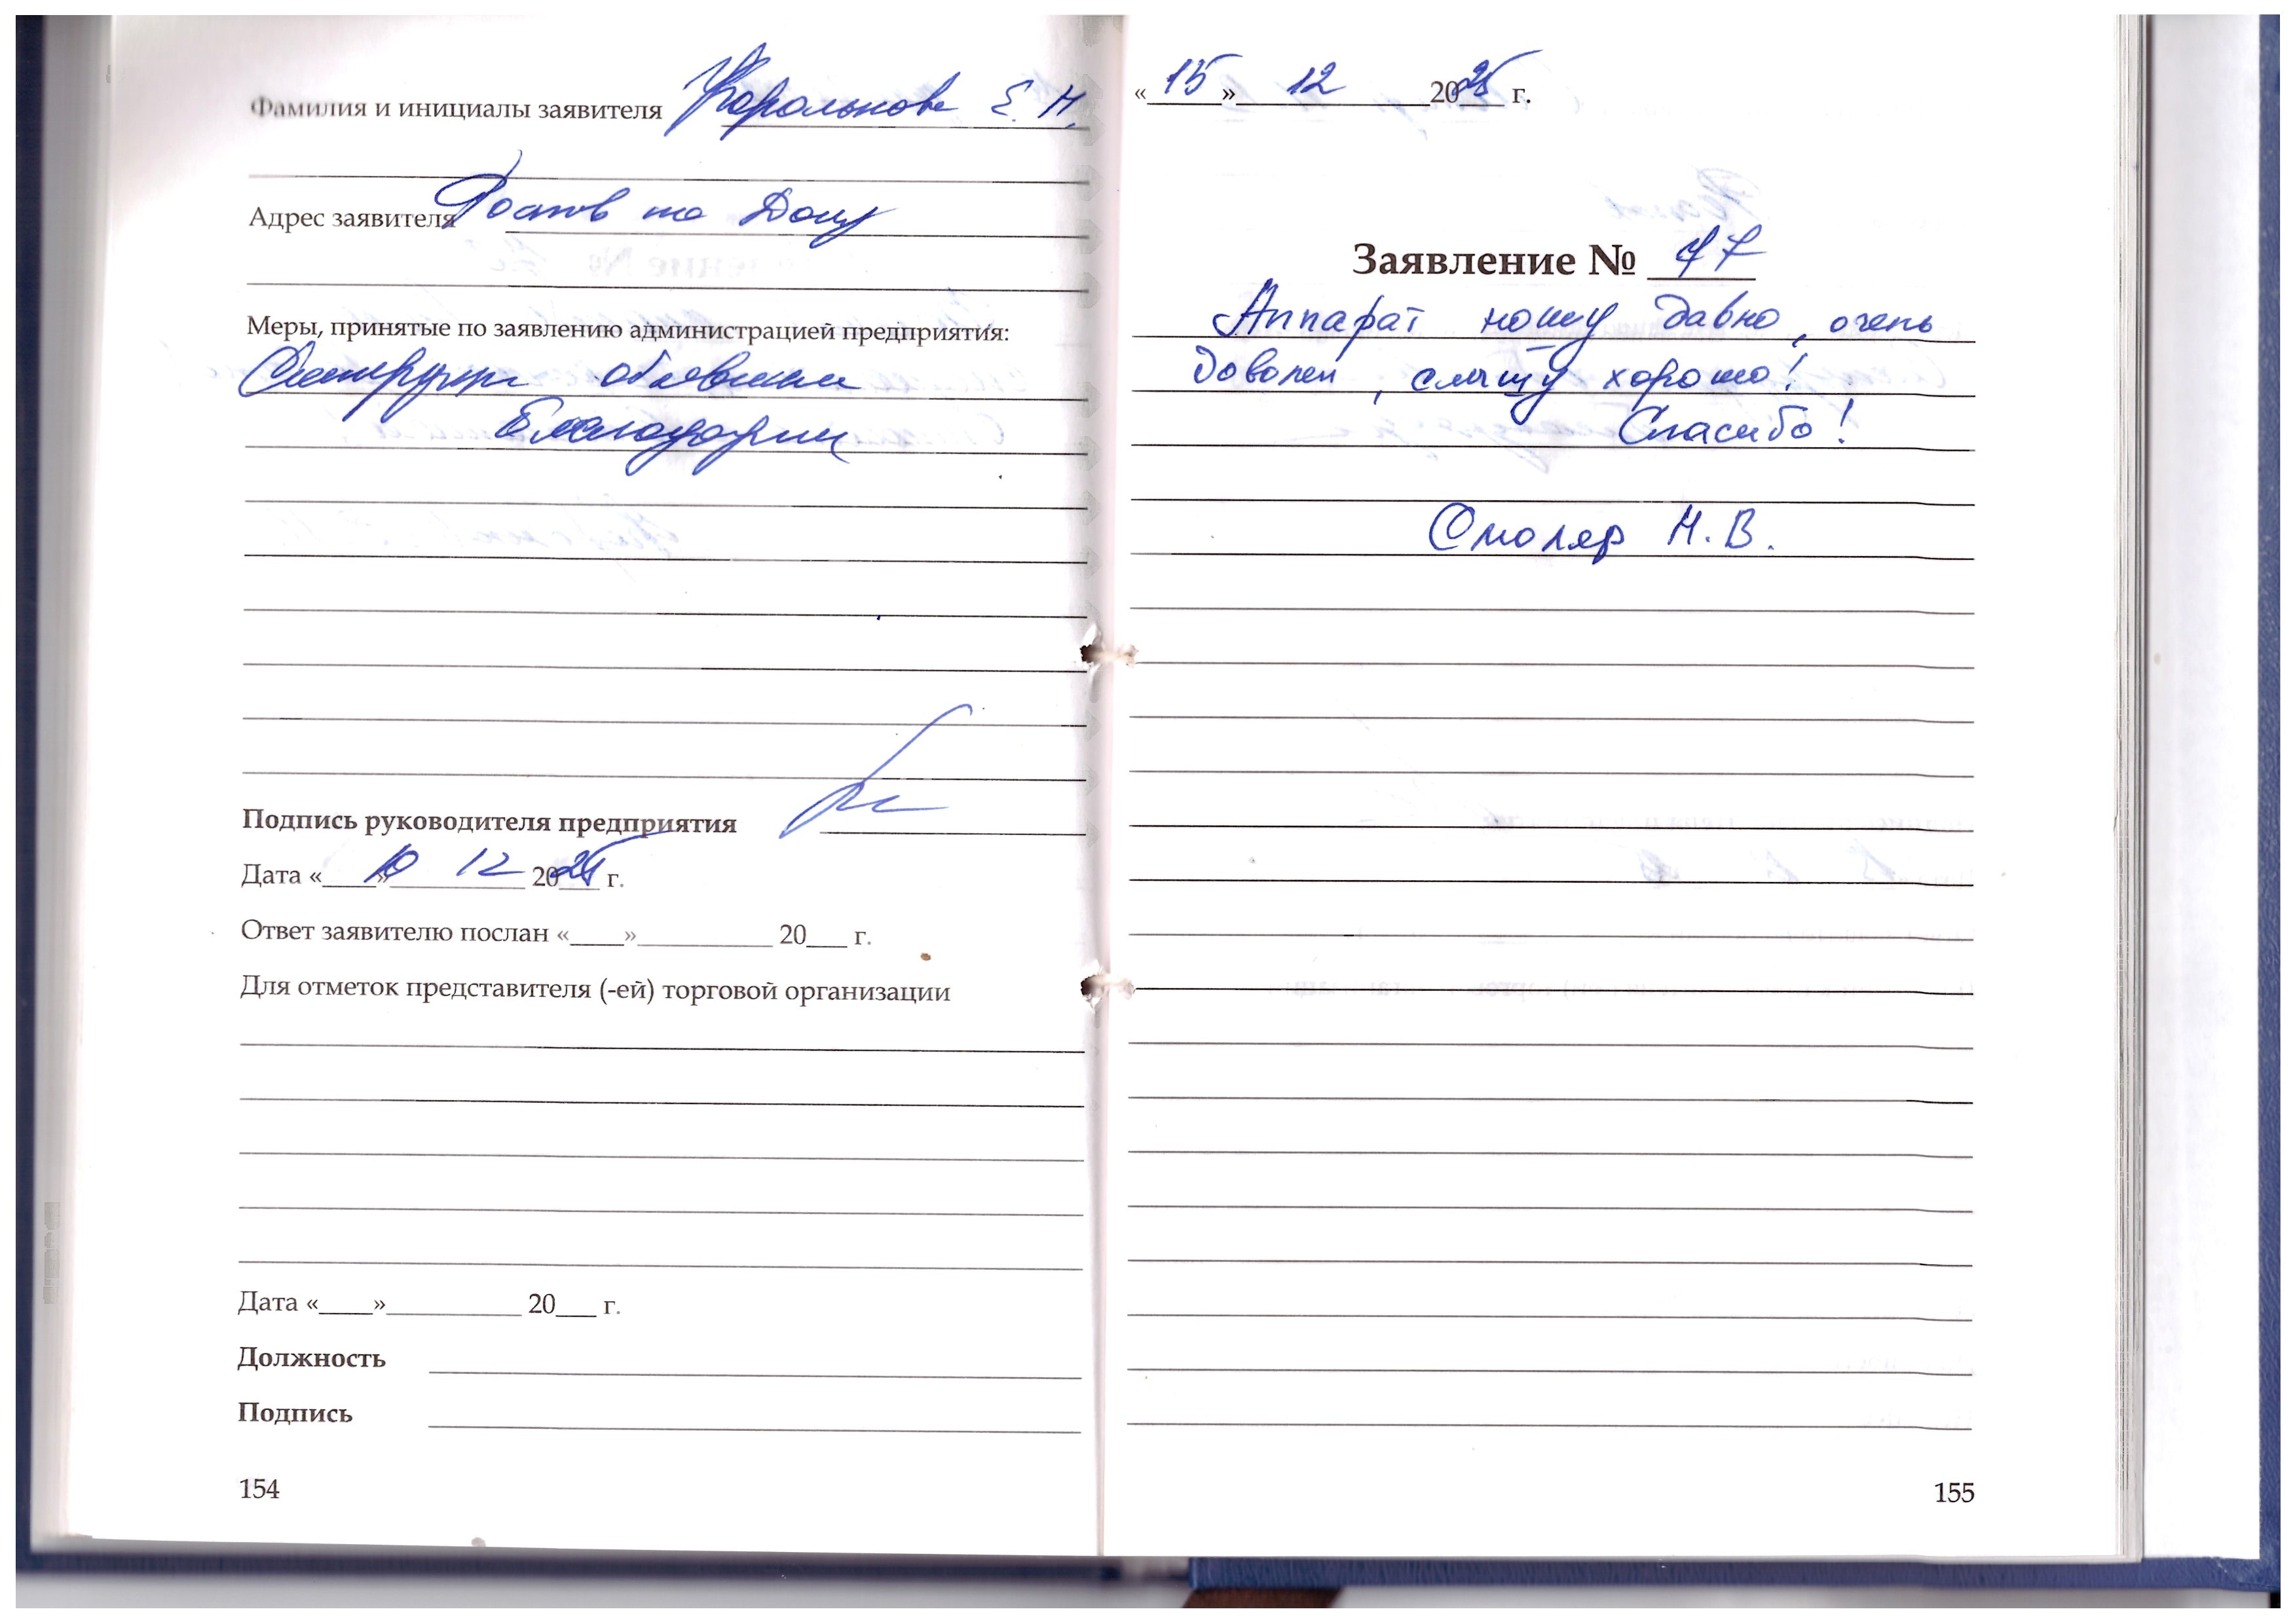 Фамилия и инициалы заявителя Королькова Е. Н.
Адрес заявителя Ростов на Дону
Меры, принятые по заявлению администрацией предприятия:
объявили
Благодарим
Подпись руководителя предприятия
Дата «10» 12 2025 г.
Ответ заявителю послан «____»__________ 20___ г.
Для отметок представителя (-ей) торговой организации
Дата «____»__________ 20___ г.
Должность
Подпись
154
«15» 12 2025 г.
Заявление № 77
Аппарат ношу давно, очень
доволен, слышу хорошо!
Спасибо!
Смоляр Н. В.
155